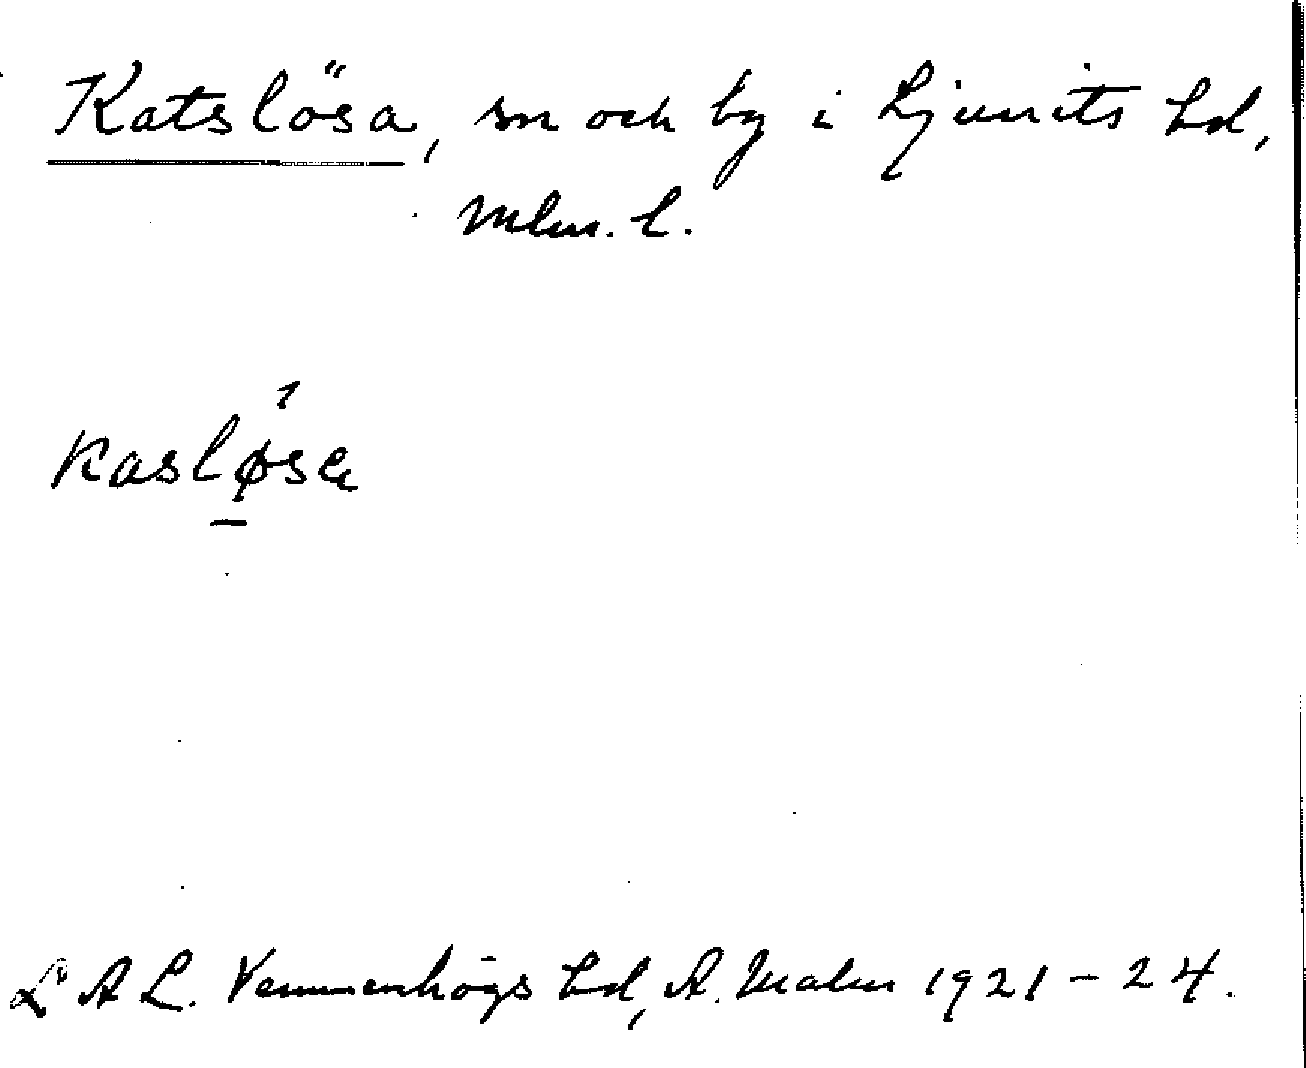 Katslösa, sn och by i Ljunits hd,
Mlm. l.
kasløsa
L A L. Vemmenhögs hd, A. Malm 1921-24.